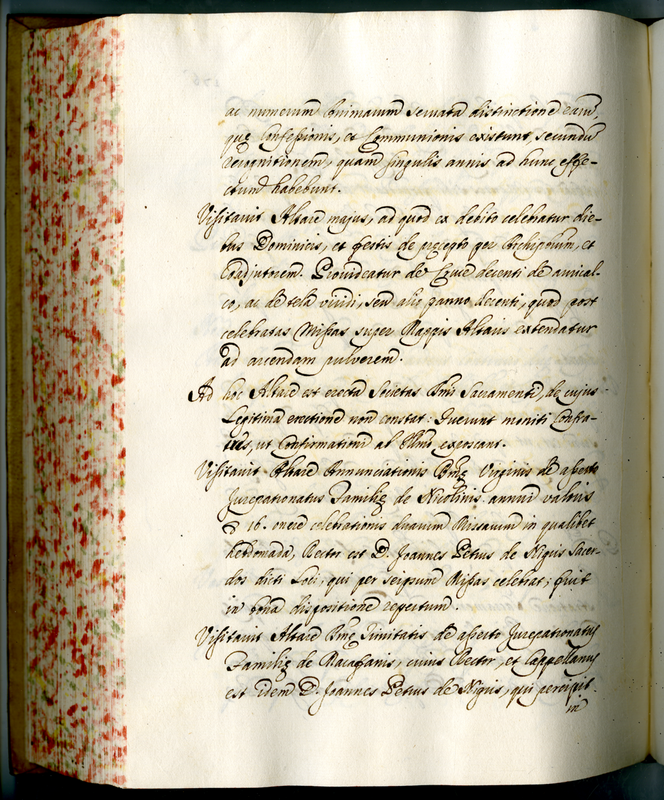 ac numerum Animarum servata distinctione earũ,
quę Confessionis, et Communionis existunt, secundũ
recognitionem, quam singulis annis ad hunc effe-
ctum habebunt.
Visitavit Altare majus, ad quod ex debito celebratur die-
bus Dominicis, et festis de precepto per Archipbrum, et
Coadjutorem. Provideatur de Cruce decenti de aurical-
co, ac de tela viridi, seu alio panno decenti, quod post
celebratas Missas super Mappis Altaris extendatur
ad arcendum pulverem.
Ad hoc Altare est erecta Societas Smi Sacramenti, de cujus
Legitima erectione non constat: Fuerunt moniti Confra-
tres, ut Confirmationem ab Illmo exposcant.
Visitavit Altare Annunciationis Bmę Virginis de asserto
Jurepatronatus Familię de Nicolinis annui valoris
16. onere celebrationis duarum Missarum in qualibet
hebdomada, Rector est D. Joannes Petrus de Nigris Sacer-
dos dicti Loci, qui per seipsum Missas celebrat; fuit
in bona dispositione repertum.
Visitavit Altare Smę Trinitatis de asserto Jurepatronatus
Familię de cuius Rector, et Cappellanus
est idem D. Joannes Petrus de Nigris, qui percipit
in